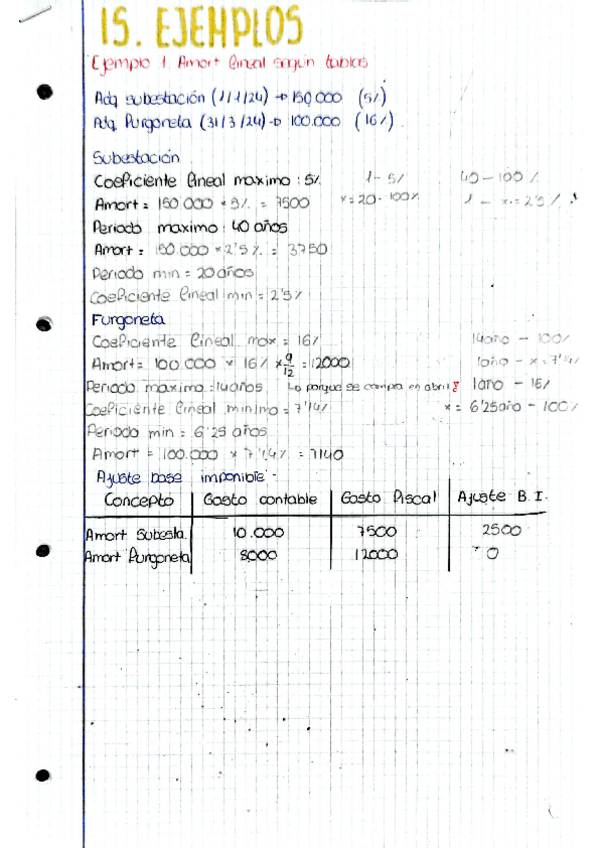 15. EJEMPLOS
Ejemplo 1 Amort lineal según tablas
Adq subestación (1/1/24) → 150.000 (5%)
Adq Furgoneta (31/3/24) → 100.000 (16%)
Subestación
Coeficiente lineal maximo : 5% 1 - 5% 40 - 100%
Amort = 150.000 × 5% = 7500 x = 20 - 100% 1 - x = 2'5%
Periodo maximo : 40 años
Amort = 150.000 × 2'5% = 3750
Periodo min = 20 años
Coeficiente lineal min = 2'5%
Furgoneta
Coeficiente lineal max = 16% 14año - 100%
Amort = 100.000 × 16% × 9/12 = 12000 1año - x = 7'14%
Periodo maximo : 14años ↳ porque se compra en abril 1año - 16%
Coeficiente lineal minimo = 7'14% x = 6'25año - 100%
Periodo min = 6'25 años
Amort = 100.000 × 7'14% = 7140
Ajuste base imponible -
Concepto Gasto contable Gasto fiscal Ajuste B.I.
Amort Subesta. 10.000 7500 2500
Amort Furgoneta 8000 12000 0